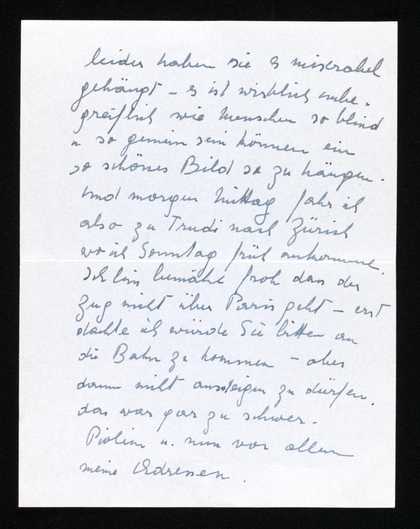 leider haben sie es miserabel
gehängt – es ist wirklich unbe-
greiflich wie Menschen so blind
u so gemein sein können ein
so schönes Bild so zu hängen.
Und morgen Mittag fahr ich
also zu Trudi nach Zürich
wo ich Sonntag früh ankomme.
Ich bin beinahe froh dass der
Zug nicht über Paris geht – erst
dachte ich würde Sie bitten an
die Bahn zu kommen – aber
dann nicht aussteigen zu dürfen.
das war gar zu schwer.
u. nun vor allem
meine Adressen.